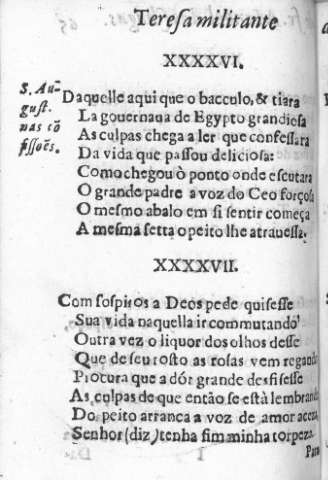 Teresa militante
XXXXVI.
S. Au-
gust.
nas cõ
fissoẽs.
Daquelle aqui que o bacculo, & tiara
La gouernaua de Egypto grandiosa
As culpas chega a ler que confessara
Da vida que passou deliciosa:
Como chegou ò ponto onde escutara
O grande padre a voz do Ceo forçosa
O mesmo abalo em si sentir começa
A mesma setta o peito lhe atrauessa.
XXXXVII.
Com sospiros a Deos pede quisesse
Sua vida naquella ir commutando
Outra vez o liquor dos olhos desse
Que de seu rosto as rosas vem regando
Procura que a dór grande desfisesse
As culpas de que então se està lembrando
Do peito arranca a voz de amor acesa,
Senhor (diz) tenha fim minha torpeza.
I
Para